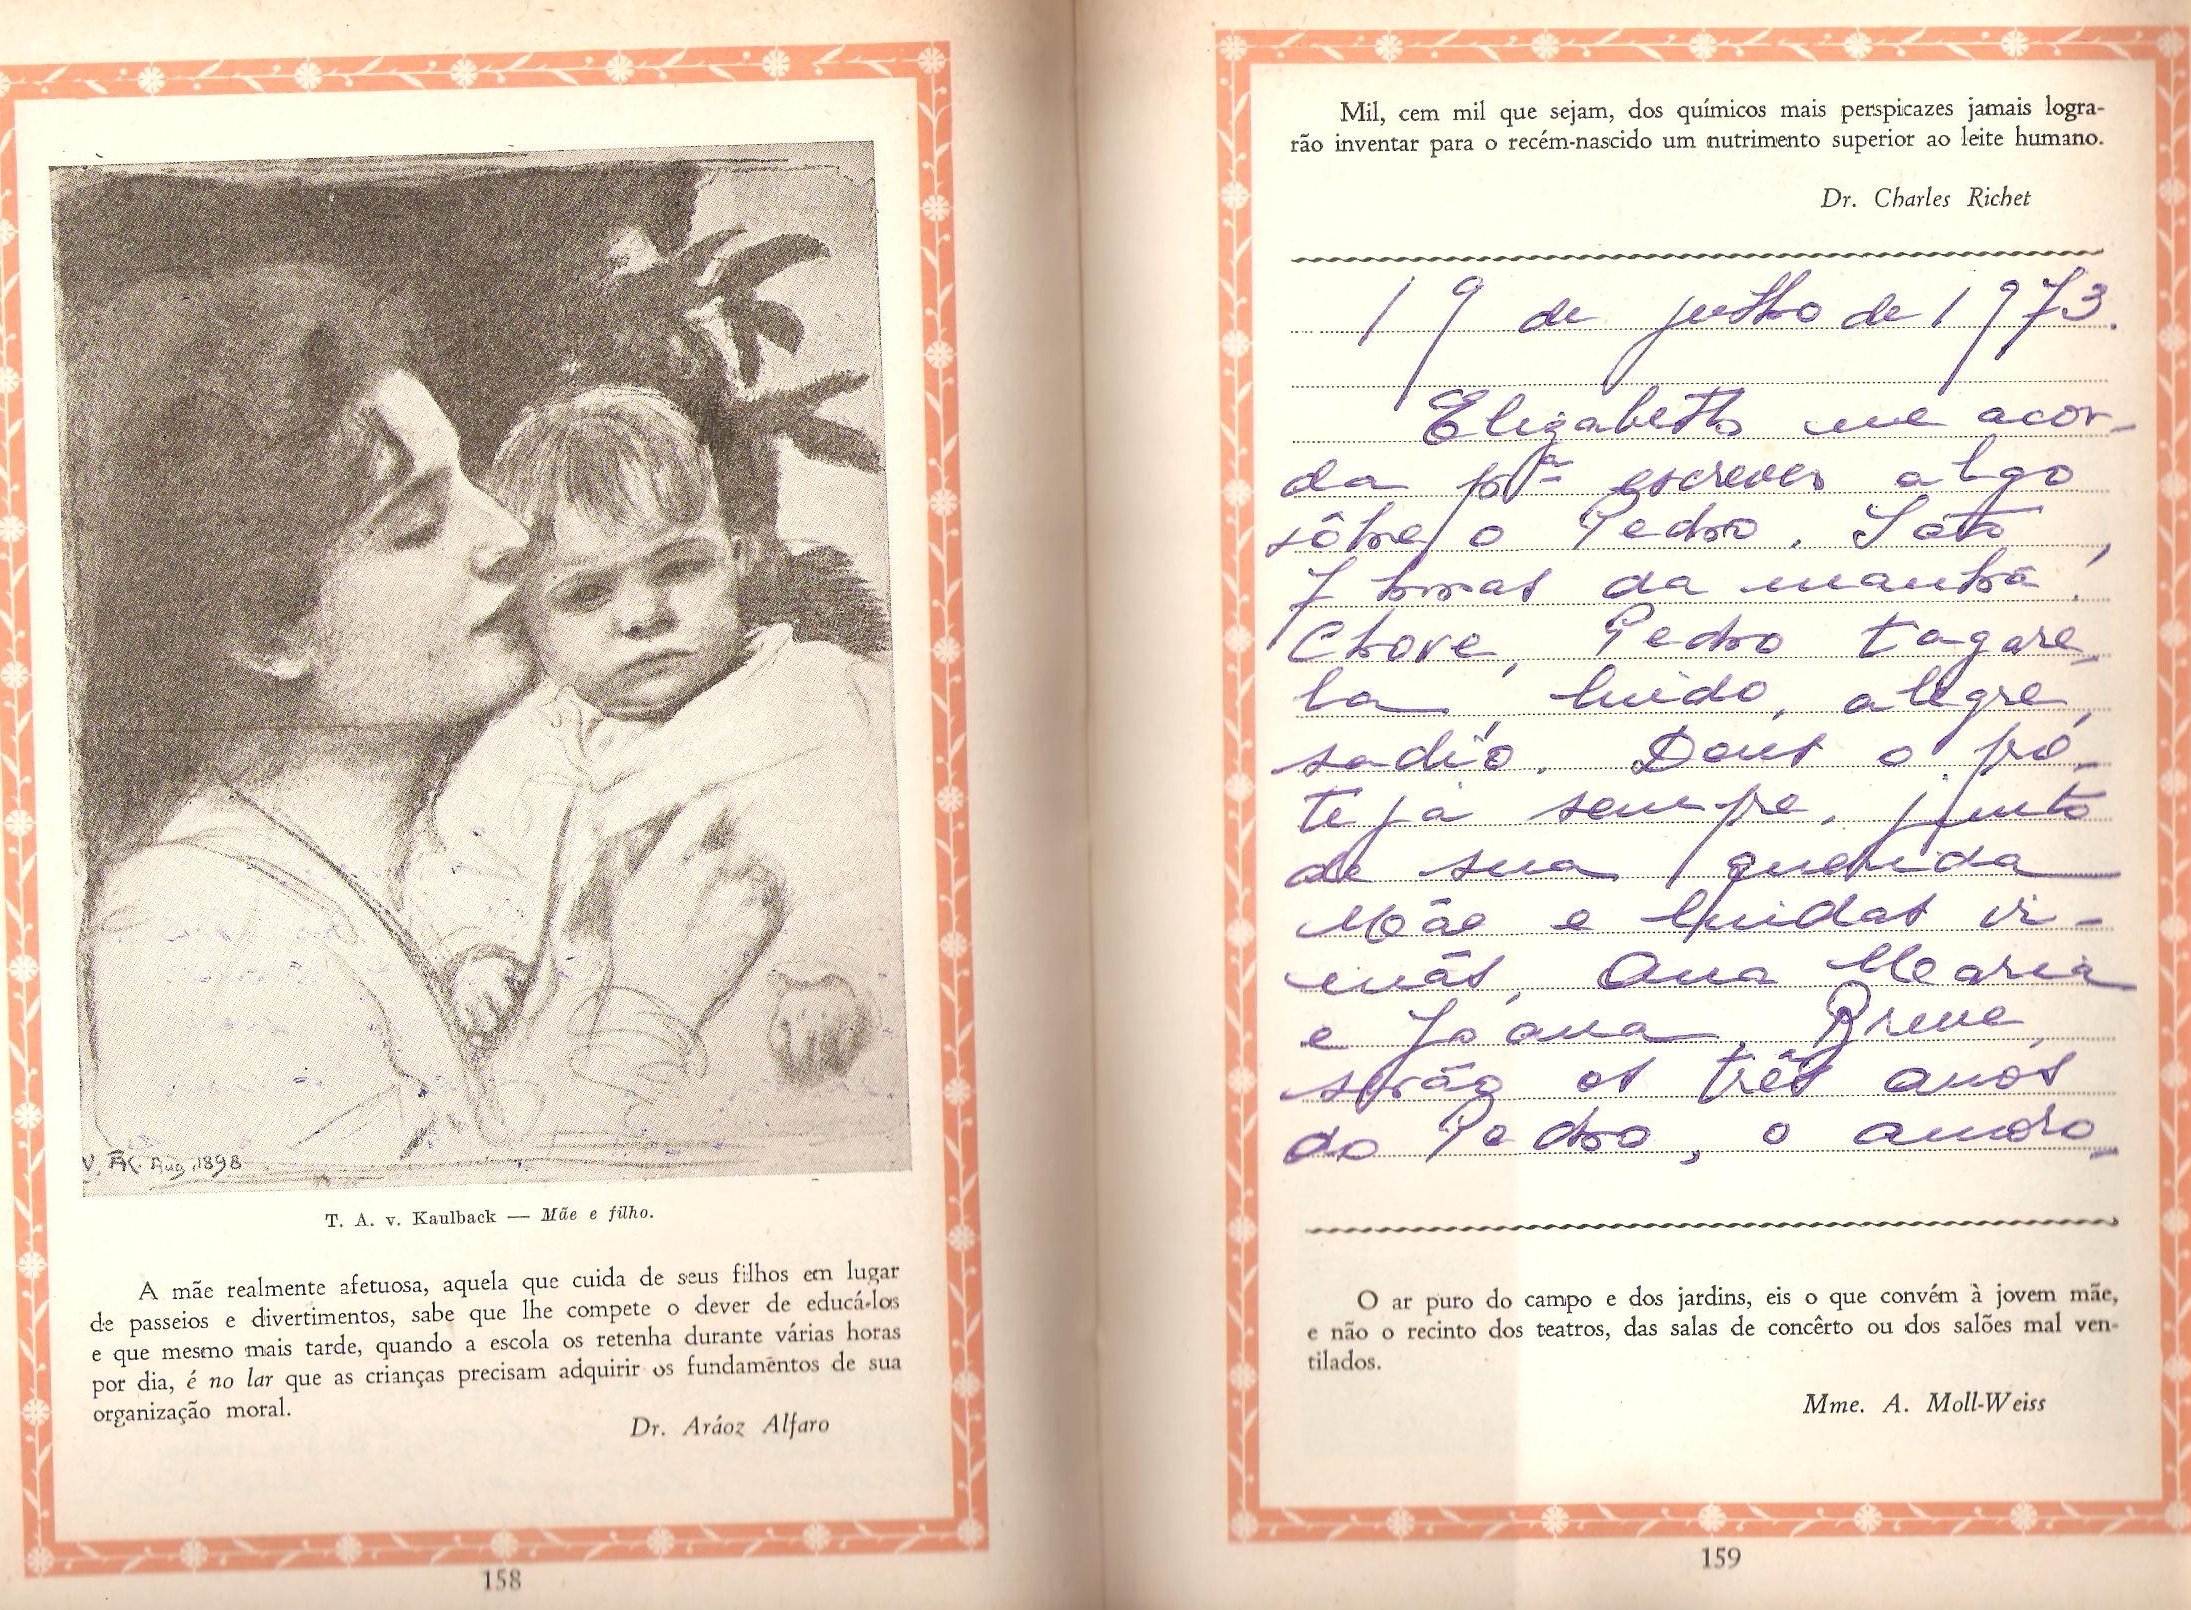 V. AK. Aug. 1898
T. A. v. Kaulback — Mãe e filho.
A mãe realmente afetuosa, aquela que cuida de seus filhos em lugar
de passeios e divertimentos, sabe que lhe compete o dever de educá-los
e que mesmo mais tarde, quando a escola os retenha durante várias horas
por dia, é no lar que as crianças precisam adquirir os fundamentos de sua
organização moral.
Dr. Aráoz Alfaro
158
Mil, cem mil que sejam, dos químicos mais perspicazes jamais logra-
rão inventar para o recém-nascido um nutrimento superior ao leite humano.
Dr. Charles Richet
19 de julho de 1973.
Elizabeth me acor-
da pª escrever algo
sôbre o Pedro. São
7 horas da manhã.
Chove, Pedro tagare-
la, lindo, alegre,
sadio. Deus o pro-
teja sempre, junto
de sua querida
Mãe e lindas ir-
mãs, Ana Maria
e Joana. Breve,
serão os três anos
do Pedro, o amoro-
O ar puro do campo e dos jardins, eis o que convém à jovem mãe,
e não o recinto dos teatros, das salas de concêrto ou dos salões mal ven-
tilados.
Mme. A. Moll-Weiss
159